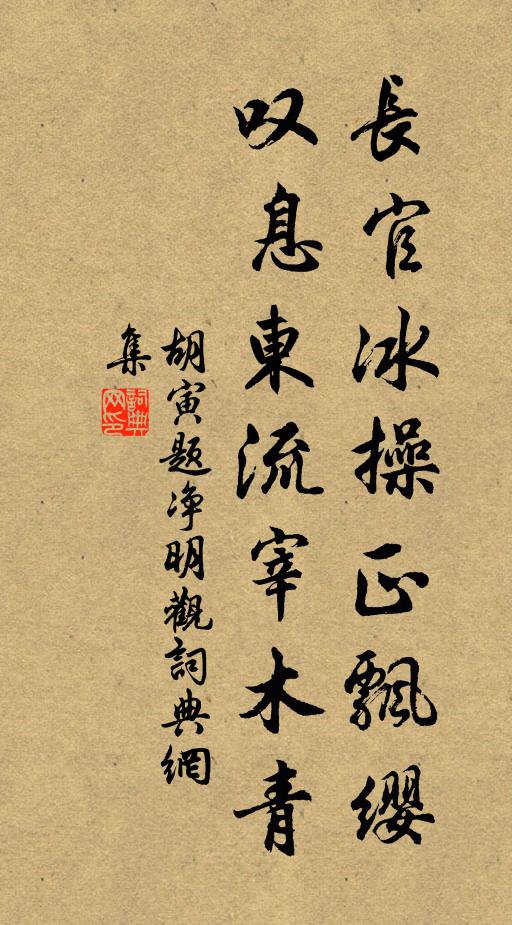 長官冰操正飄缨
叹息東流宰木青
胡寅题净明觀詞典網
集
詞典網印